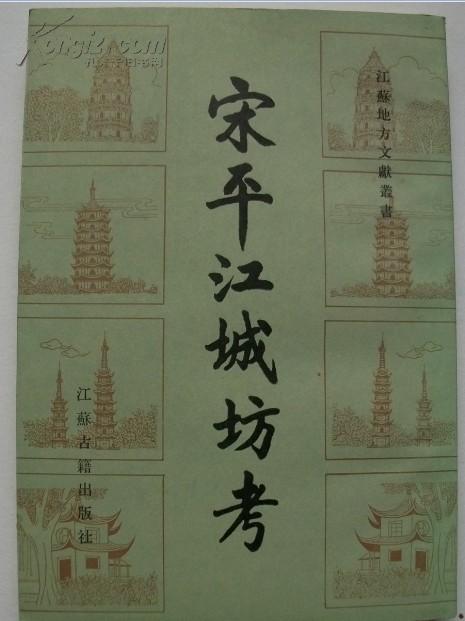 江蘇地方文獻叢書
宋平江城坊考
江蘇古籍出版社
Kongfz.com
孔夫子旧书网